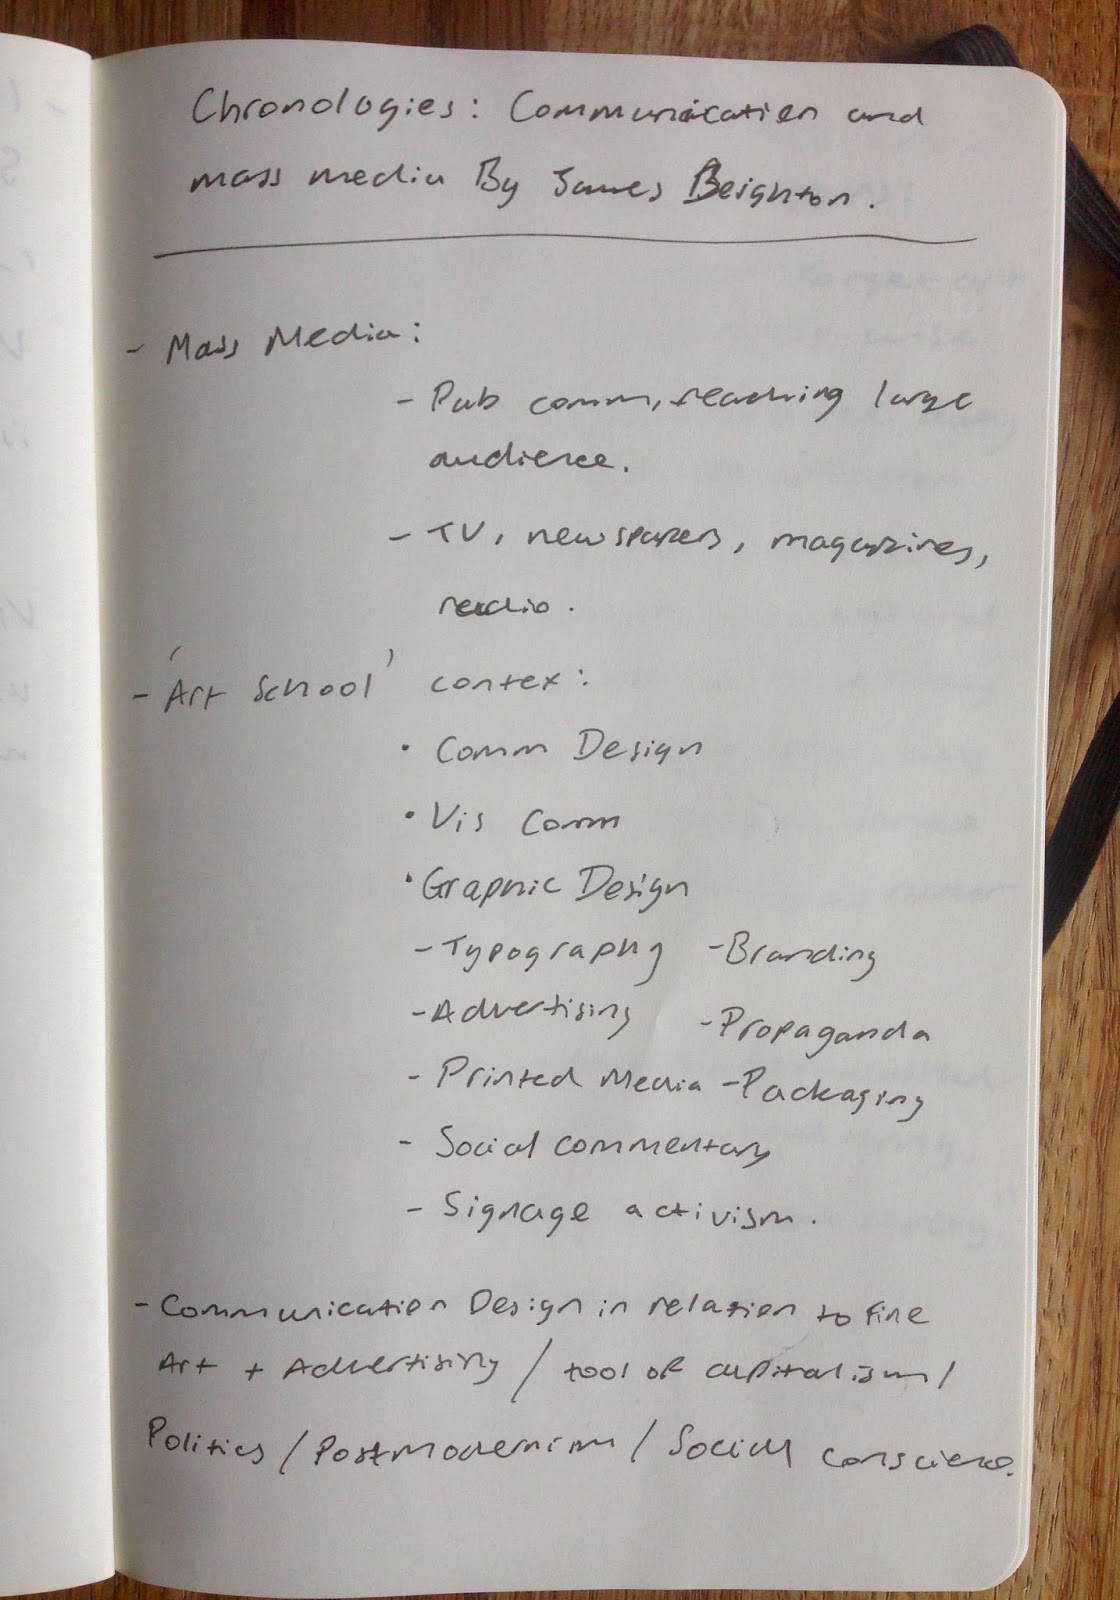 Chronologies: Communication and
mass media By James Beighton.
- Mass Media:
- Pub comm, reaching large
audience.
- TV, newspapers, magazines,
radio.
- 'Art School' contex:
• Comm Design
• Vis Comm
• Graphic Design
- Typography - Branding
- Advertising - Propaganda
- Printed Media - Packaging
- Social commentary
- Signage activism.
- Communication Design in relation to Fine
Art + Advertising / tool of capitalism /
Politics / Postmodernism / Social conscience.